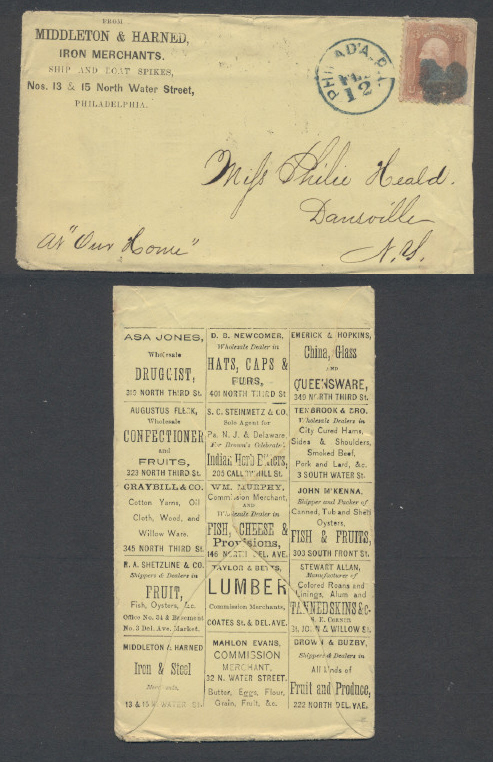 FROM
MIDDLETON & HARNED,
IRON MERCHANTS.
SHIP AND BOAT SPIKES,
Nos. 13 & 15 North Water Street,
PHILADELPHIA.
PHILAD'A. PA.
12
3
Miss Philie Heald.
Dansville
N.Y.
At "Our Home"
ASA JONES,
Wholesale
DRUGGIST,
319 NORTH THIRD St.
D. B. NEWCOMER,
Wholesale Dealer in
HATS, CAPS &
FURS,
401 NORTH THIRD St
EMERICK & HOPKINS,
China, Glass
AND
QUEENSWARE,
349 NORTH THIRD St.
AUGUSTUS FLECK,
Wholesale
CONFECTIONER
and
FRUITS,
323 NORTH THIRD St.
S. C. STEINMETZ & CO.
Sole Agent for
Pa. N. J. & Delaware
Indian Herb Bitters,
205 CALLOWHILL St.
TENBROOK & BRO.
Wholesale Dealers in
City Cured Hams,
Sides & Shoulders,
Smoked Beef,
Pork and Lard, &c.
3 SOUTH WATER St.
GRAYBILL & CO.
Cotton Yarns, Oil
Cloth, Wood, and
Willow Ware.
345 NORTH THIRD St.
WM. MURPHY,
Commission Merchant,
AND
Wholesale Dealer in
FISH, CHEESE &
Provisions,
146 NORTH DEL. AVE.
JOHN M'KENNA,
Shipper and Packer of
Canned, Tub and Shell
Oysters,
FISH & FRUITS,
303 SOUTH FRONT St.
R. A. SHETZLINE & CO.
Shippers & Dealers in
FRUIT,
Fish, Oysters, &c.
Office No. 34 & Basement
No. 3 Del. Ave. Market.
TAYLOR & BETTS,
LUMBER
Commission Merchants,
COATES St. & DEL. AVE.
STEWART ALLAN,
Manufacturer of
Colored Roans and
Linings, Alum and
TANNED SKINS &c.
S. E. CORNER
St. JOHN & WILLOW St.
MIDDLETON & HARNED
Iron & Steel
Merchants,
13 & 15 N. WATER St.
MAHLON EVANS,
COMMISSION
MERCHANT,
32 N. WATER STREET.
Butter, Eggs, Flour,
Grain, Fruit, &c.
BROWN & BUZBY,
Shippers & Dealers in
All kinds of
Fruit and Produce,
222 NORTH DEL. VAE.